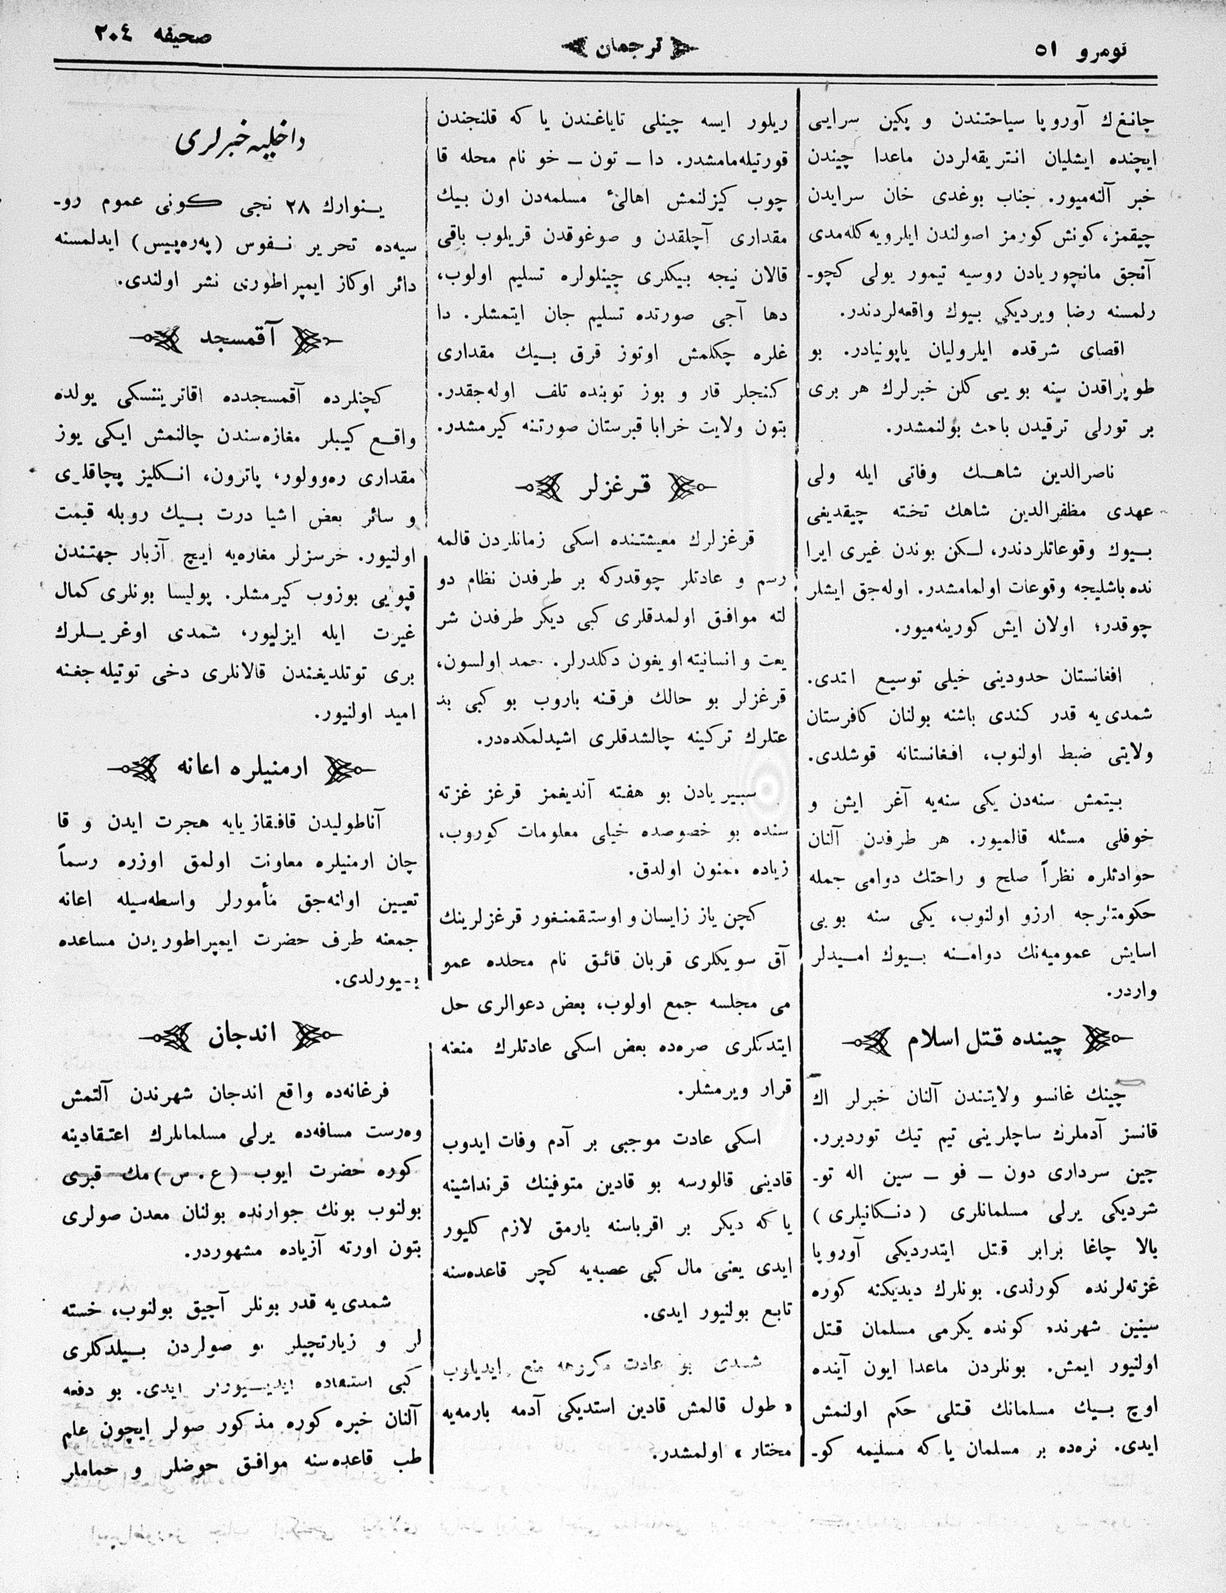 نومرو ٥١
ترجمان
صحيفه ٢٠٤
چانغ‌ك آوروپا سياحتندن و پكين سرايى
ايچنده ايشليان انتريقه‌لردن ماعدا چيندن
خبر آلنه‌ميور. جناب بوغدى خان سرايدن
چيقمز، كونش كورمز اصولندن ايلرويه كله‌مدى
آنجق مانچوريادن روسيه تيمور يولى كچو-
رلمسنه رضا ويرديكى بيوك واقعه‌لردندر.
اقصاى شرقده ايلروليان ياپونيادر. بو
طوپراقدن سنه بويى كلن خبرلرك هر برى
بر تورلى ترقيدن باحث بولنمشدر.
ناصرالدين شاهك وفاتى ايله ولى
عهدى مظفرالدين شاهك تخته چيقديغى
بيوك وقوعاتلردندر، لكن بوندن غيرى ايرا
نده باشليجه وقوعات اولمامشدر. اوله‌جق ايشلر
چوقدر؛ اولان ايش كورينه‌ميور.
افغانستان حدودينى خيلى توسيع ايتدى.
شمدى‌يه قدر كندى باشنه بولنان كافرستان
ولايتى ضبط اولنوب، افغانستانه قوشلدى.
بيتمش سنه‌دن يكى سنه‌يه آغر ايش و
خوفلى مسئله قالميور. هر طرفدن آلنان
حوادثلره نظراً صلح و راحتك دوامى جمله
حكومتلرجه ارزو اولنوب، يكى سنه بويى
اسايش عموميه‌نك دوامنه بيوك اميدلر
واردر.
چينده قتل اسلام
چينك غانسو ولايتندن آلنان خبرلر اك
قانسز آدملرك ساچلرينى تيم تيك توردیرر.
چين سردارى دون — فو — سين اله تو-
شرديكى يرلى مسلمانلرى (دنكانيلرى)
بالا چاغا برابر قتل ايتدرديكى آوروپا
غزته‌لرنده كورلدى. بونلرك ديديكنه كوره
سينين شهرنده كونده يكرمى مسلمان قتل
اولنيور ايمش. بونلردن ماعدا ايون آينده
اوچ بيك مسلمانك قتلى حكم اولنمش
ايدى. نره‌ده بر مسلمان يا كه مسليمه كو-
ريلور ايسه چينلى تاياغندن يا كه قلنجندن
قورتيله‌مامشدر. دا — تون — خو نام محله قا
چوب كيزلنمش اهالئ مسلمه‌دن اون بيك
مقدارى آچلقدن و صوغوقدن قريلوب باقى
قالان نيجه بيكلرى چينلولره تسليم اولوب،
دها آجى صورتده تسليم جان ايتمشلر. دا
غلره چكلمش اوتوز قرق بيك مقدارى
كنجلر قار و بوز توبنده تلف اوله‌جقدر.
بتون ولايت خرابا قبرستان صورتنه كيرمشدر.
قرغزلر
قرغزلرك معيشتنده اسكى زمانلردن قالمه
رسم و عادتلر چوقدركه بر طرفدن نظام دو
لته موافق اولمدقلرى كبى ديكر طرفدن شر
يعت و انسانيته اويغون دكلدرلر. حمد اولسون،
قرغزلر بو حالك فرقنه باروب بو كبى بد
عتلرك تركينه چالشدقلرى اشيدلمكده‌در.
سبيريادن بو هفته آنديغمز قرغز غزته
سنده بو خصوصده خيلى معلومات كوروب،
زياده ممنون اولدق.
كچن ياز زايسان و اوستقمنغور قرغزلرينك
آق سويكلرى قربان قائق نام محلده عمو
مى مجلسه جمع اولوب، بعض دعوالرى حل
ايتدكلرى صره‌ده بعض اسكى عادتلرك منعنه
قرار ويرمشلر.
اسكى عادت موجبى بر آدم وفات ايدوب
قادينى قالورسه بو قادين متوفينك قرنداشينه
يا كه ديكر بر اقرباسنه بارمق لازم كليور
ايدى يعنى مال كبى عصبه‌يه كچر قاعده‌سنه
تابع بولنيور ايدى.
شمدى بو عادت مكروهه منع ايديلوب
« طول قالمش قادين استديكى آدمه بارمه‌يه
مختار » اولمشدر.
داخليه خبرلرى
ينوارك ٢٨ نجى كونى عموم رو-
سيه‌ده تحرير نفوس (په‌ره‌پيس) ايدلمسنه
دائر اوكاز ايمپراطورى نشر اولندى.
آقمسجد
كچنلرده آقمسجدده اقاترينتسكى يولده
واقع كيبلر مغازه‌سندن چالنمش ايكى يوز
مقدارى ره‌وولور، پاترون، انكليز پچاقلرى
و سائر بعض اشيا درت بيك روبله قيمت
اولنيور. خرسزلر مغازه‌يه ايچ آزبار جهتندن
قپويى بوزوب كيرمشلر. پوليسا بونلرى كمال
غيرت ايله ايزليور، شمدى اوغريلرك
برى توتلديغندن قالانلرى دخى توتيله جغنه
اميد اولنيور.
ارمنيلره اعانه
آناطوليدن قافقازيايه هجرت ايدن و قا
چان ارمنيلره معاونت اولمق اوزره رسماً
تعيين اولنه‌جق مأمورلر واسطه‌سيله اعانه
جمعنه طرف حضرت ايمپراطوريدن مساعده
بيورلدى.
اندجان
فرغانه‌ده واقع اندجان شهرندن آلتمش
وه‌رست مسافه‌ده يرلى مسلمانلرك اعتقادينه
كوره حضرت ايوب (ع. س) مك قبرى
بولنوب بونك جوارنده بولنان معدن صولرى
بتون اورته آزياده مشهوردر.
شمدى‌يه قدر بونلر آچيق بولنوب، خسته
لر و زيارتچيلر بو صولردن بيلدكلرى
كبى استفاده ايديبورلر ايدى. بو دفعه
آلنان خبره كوره مذكور صولر ايچون علم
طب قاعده‌سنه موافق حوضلر و حماملر